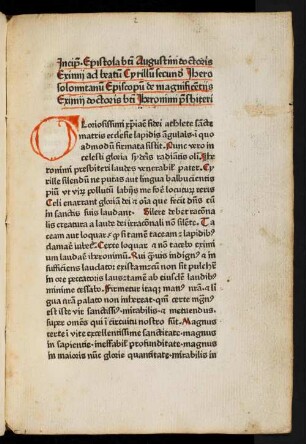 Incip. Epistola bti Augustini doctoris
Eximij ad beatum Cyrillū secund Ihero
solomitanū Episcopū de magnificētijs
Eximij doctoris bti Iheronimi psbiteri
Gloriosissimi xpiane fidei athlete sancte
matris ecclesie lapidis angulais i quo
admodū firmata sistit. Nunc vero in
celesti gloria syderis radiatis oli. Ihe
ronimi presbiteri laudes venerabil pater
Cyrille silendū ne putas aut lingua balbucientis
pueri vt viri polluti labijs me fore locuturum
Celi enarrant gloriā dei et oīa que fecit dñs eū
in sanctis suis laudant. Silere debet racona
lis creatura a laude dei irraconali nō silēte. Ta
ceam aut loquar et si tamē taceam lapidibus
clamare iubet. Certe loquar et nō tacebo eximi
um laudare iheronimū. Qui quis indignus et in
sufficiens laudator existam tamen non sit pulchra in
in ore peccatoris laus tamē ab eiusdē laudibus
minime cessabo. Firmetur itaque manus nrā et li
gua nrā palato non inhereat qm certe magnus
est iste vir sanctissimus mirabilis et metuendus.
supra omēs qui in circuitu nostro sūt. Magnus
certe in vite excellentissime sanctitate magnus
in sapientie ineffabili profunditate magnus
in maioris nūc glorie quantitate mirabilis in